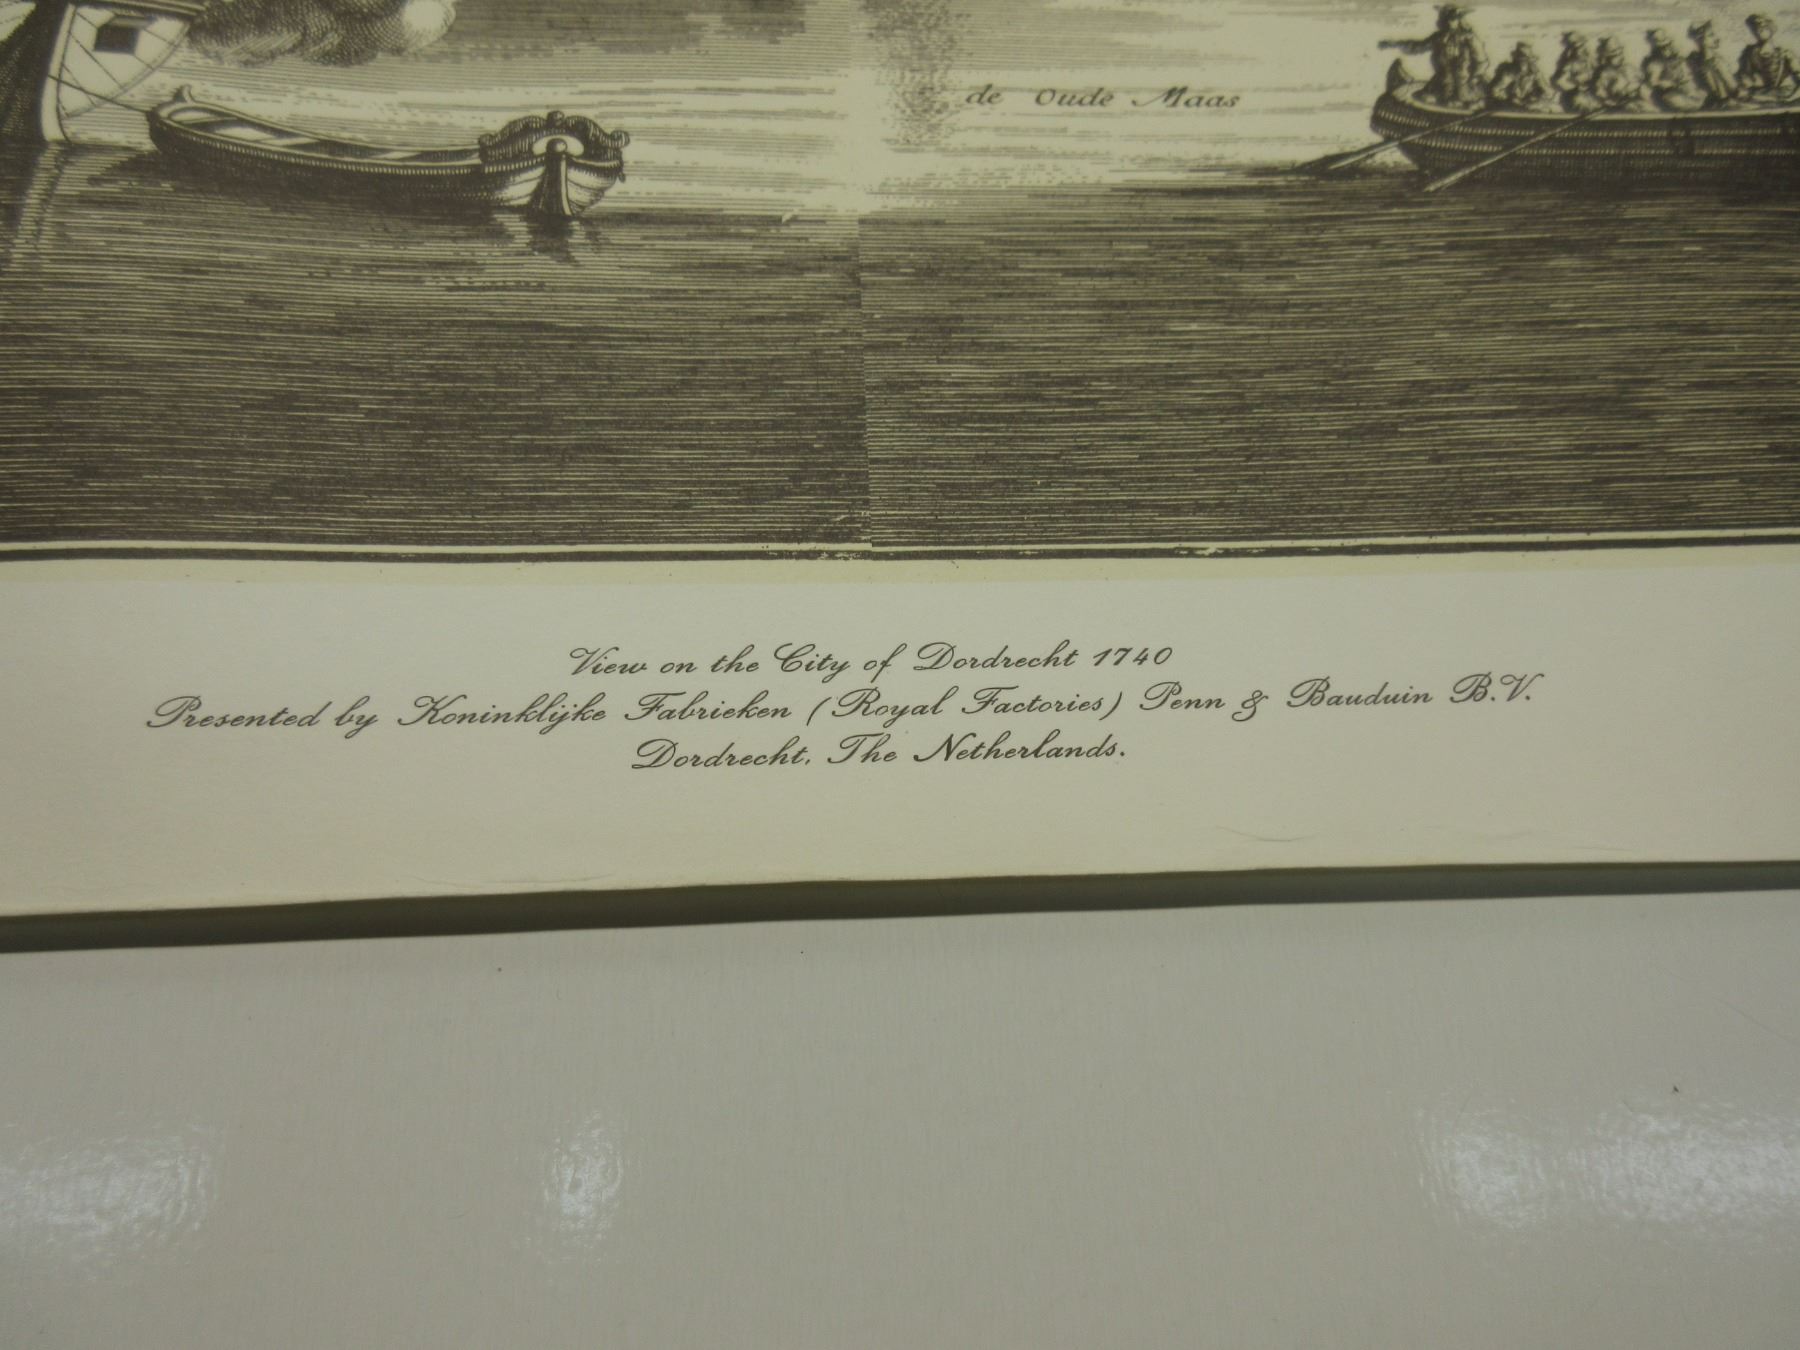 de Oude Maas
View on the City of Dordrecht 1740
Presented by Koninklijke Fabrieken (Royal Factories) Penn & Bauduin B.V.
Dordrecht, The Netherlands.